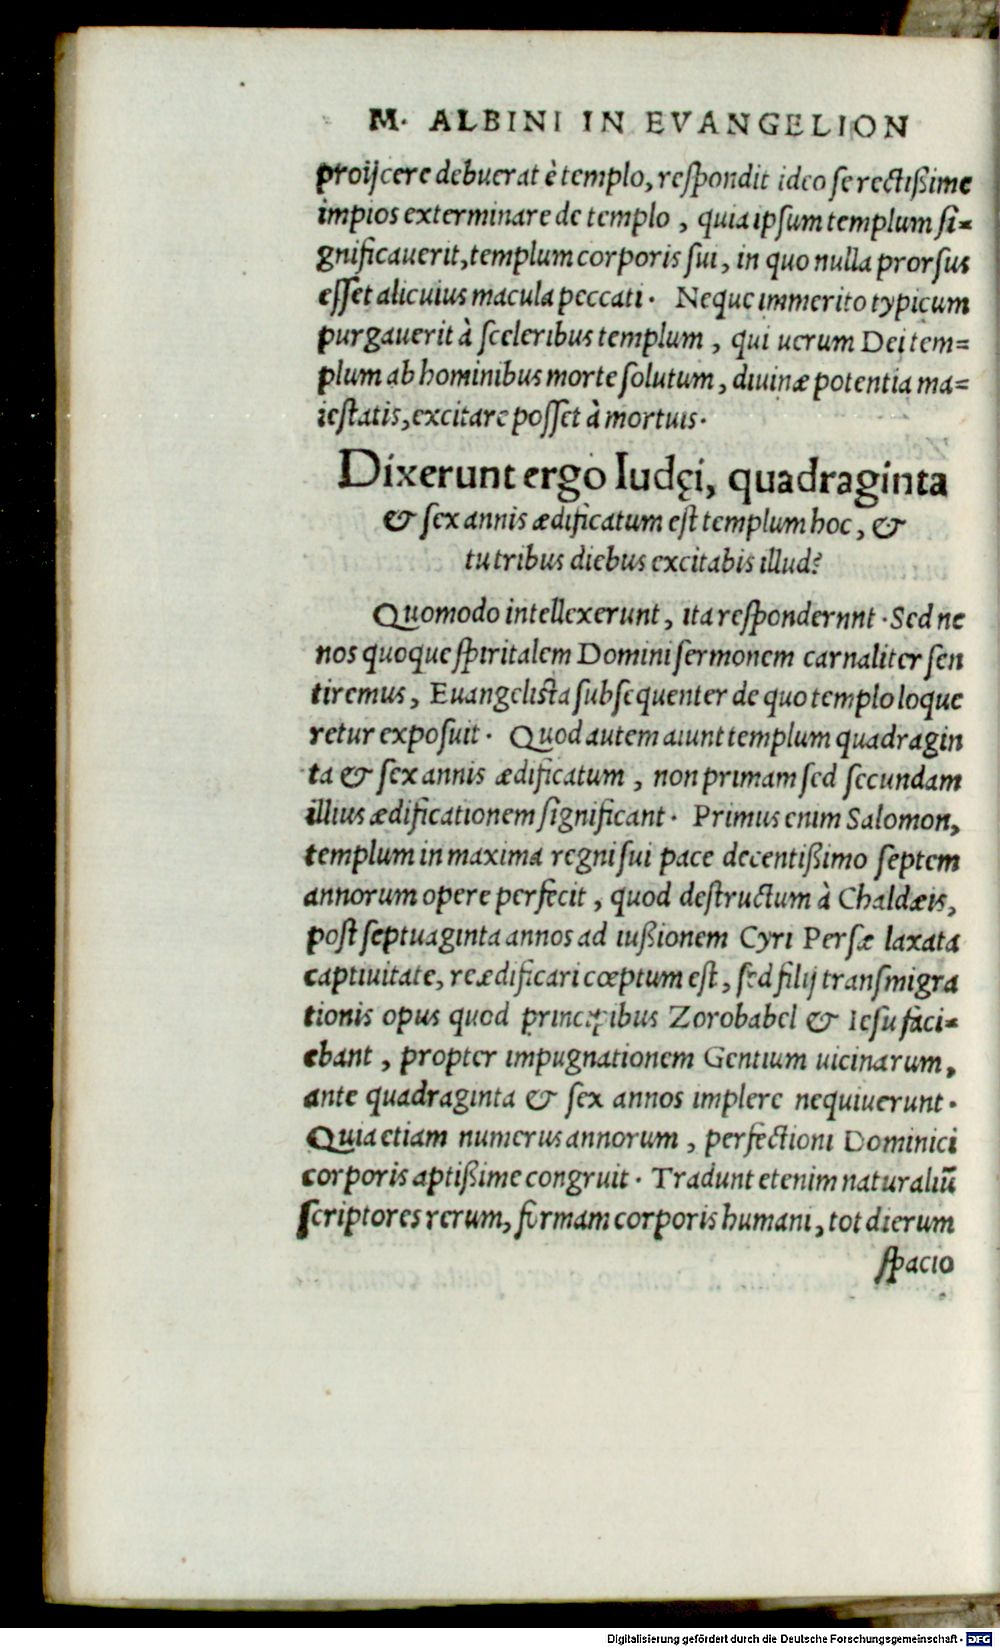 M. ALBINI IN EVANGELION
proijcere debuerat è templo, reſpondit ideo ſe rectißime
impios exterminare de templo, quia ipſum templum ſi-
gnificauerit, templum corporis ſui, in quo nulla prorſus
eſſet alicuius macula peccati. Neque immerito typicum
purgauerit à ſceleribus templum, qui uerum Dei tem=
plum ab hominibus morte ſolutum, diuinæ potentia ma=
ieſtatis, excitare poſſet à mortuis.
Dixerunt ergo Iudęi, quadraginta
& ſex annis ædificatum eſt templum hoc, &
tu tribus diebus excitabis illud?
Quomodo intellexerunt, ita reſpondernnt. Sed ne
nos quoque ſpiritalem Domini ſermonem carnaliter ſen
tiremus, Euangeliſta ſubſequenter de quo templo loque
retur expoſuit. Quod autem aiunt templum quadragin
ta & ſex annis ædificatum, non primam ſed ſecundam
illius ædificationem ſignificant. Primus enim Salomon,
templum in maxima regni ſui pace decentißimo ſeptem
annorum opere perfecit, quod deſtructum à Chaldæis,
poſt ſeptuaginta annos ad iußionem Cyri Perſæ laxata
captiuitate, reædificari cœptum eſt, ſed filij tranſmigra
tionis opus quod principibus Zorobabel & Ieſu faci-
ebant, propter impugnationem Gentium uicinarum,
ante quadraginta & ſex annos implere nequiuerunt.
Quia etiam numerus annorum, perfectioni Dominici
corporis aptißime congruit. Tradunt etenim naturaliū
ſcriptores rerum, formam corporis humani, tot dierum
ſpacio
Digitalisierung gefördert durch die Deutsche Forschungsgemeinschaft - DFG